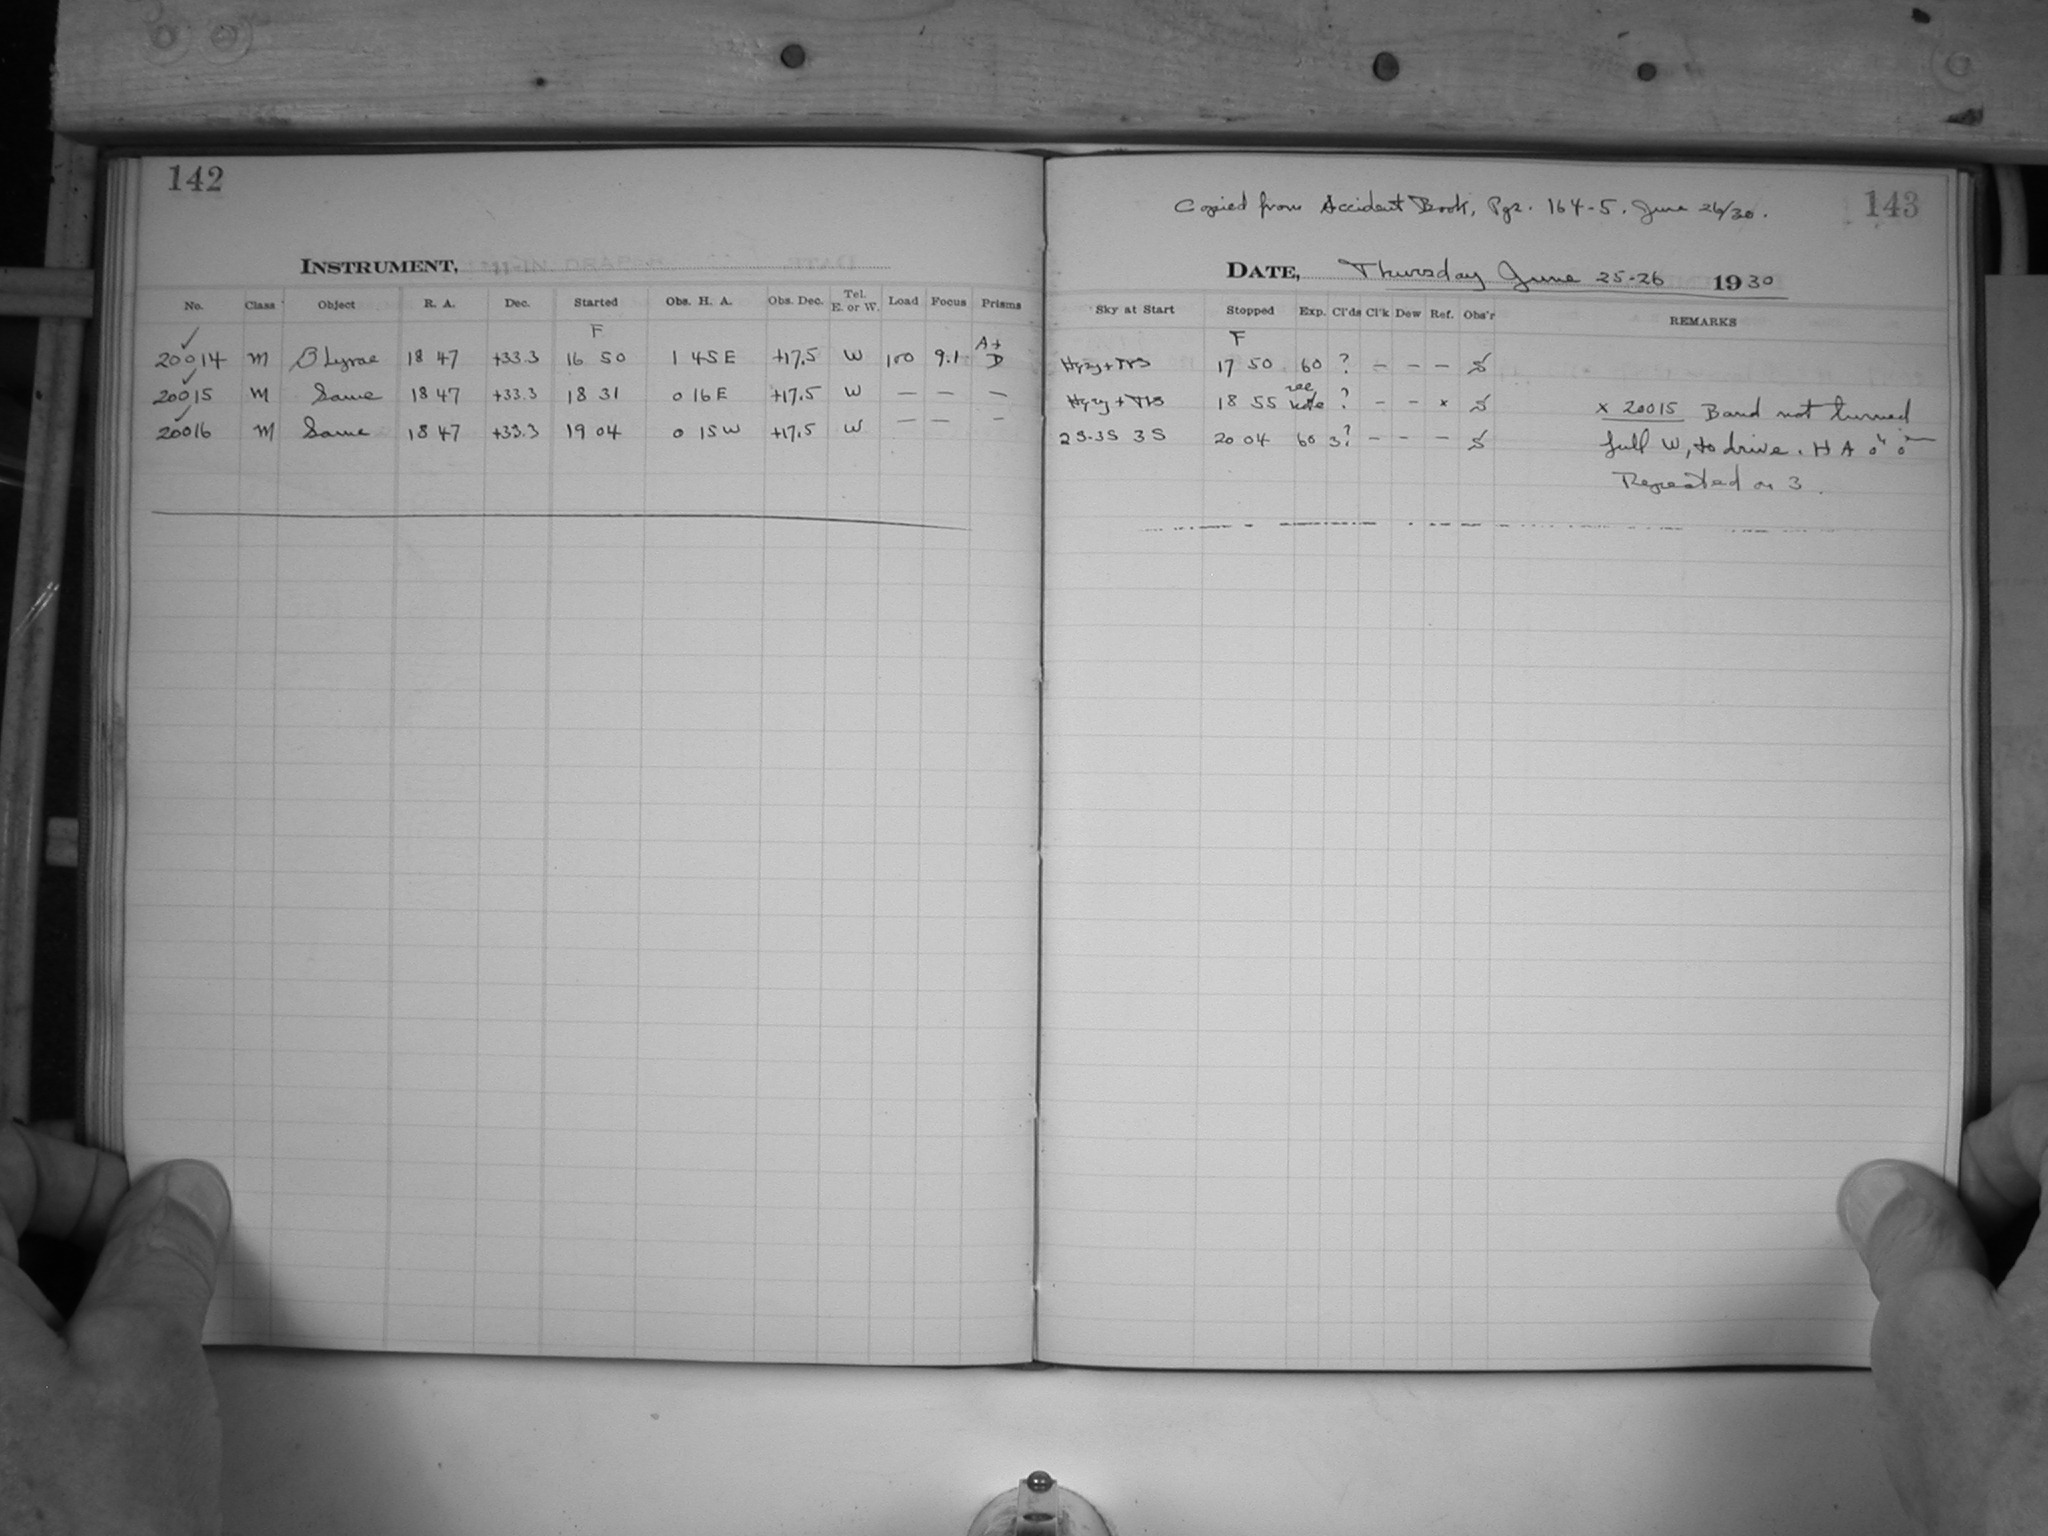 142
INSTRUMENT,
No. Class Object R. A. Dec. Started Obs. H. A. Obs. Dec. Tel. E. or W. Load Focus Prisms
F
20014 M B Lyrae 18 47 +33.3 16 50 1 45 E +17.5 W 100 9.1 A+ D
20015 M Same 18 47 +33.3 18 31 0 16 E +17.5 W — — —
20016 M Same 18 47 +33.3 19 04 0 15 W +17.5 W — — —
143
Copied from Accident Book, Pgs. 164-5. June 26/30.
DATE, Thursday June 25-26 1930
Sky at Start Stopped Exp. Cl'ds Cl'k Dew Ref. Obs'r REMARKS
F
17 50 60 ? — — — S
18 55 see note ? — — x S x 20015 Band not turned
2S-3S 3S 20 04 60 3? — — — S full W, to drive. H A
Repeated on 3.